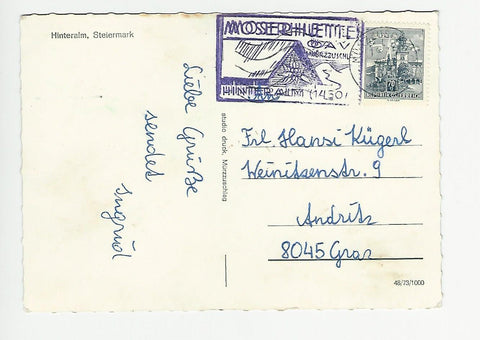 Hinteralm, Steiermark
MOSERHÜTTE
ÖAV
MÜRZZUSCHL
HINTERALM (1450)
REPUBLIK ÖSTERREICH
Liebe Grüße
sendet
Ingrid
studio druck, Mürzzuschlag
Frl. Hansi Kügerl
Weinitzenstr. 9
Andritz
8045 Graz
48/73/1000